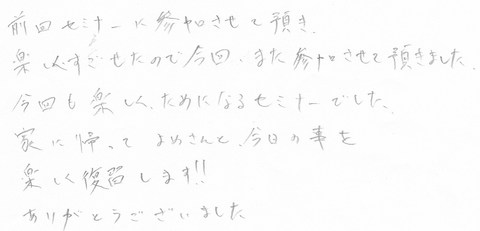 前回セミナーに参加させて頂き、
楽しくすごせたので今回、また参加させて頂きました。
今回も楽しく、ためになるセミナーでした。
家に帰って よめさんと、今日の事を
楽しく復習します!!
ありがとうございました